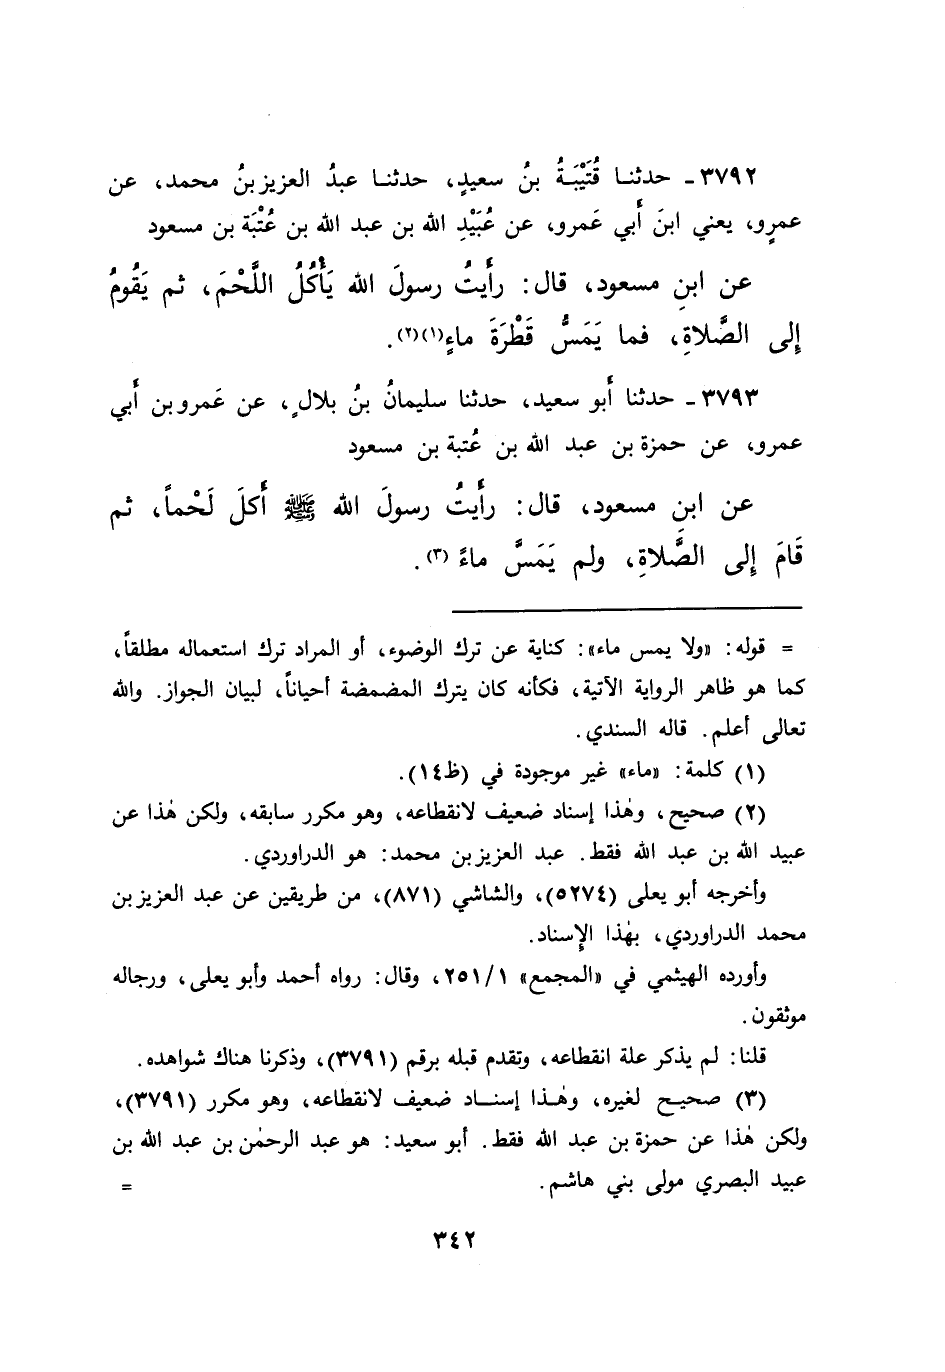 ٣٧٩٢ - حدثنا قُتَيْبَةُ بنُ سعيدٍ، حدثنا عبدُ العزيز بنُ محمد، عن
عمرٍو، يعني ابنَ أَبي عَمرو، عن عُبَيْدِ الله بن عبد الله بن عُتْبَة بن مسعود
عن ابنِ مسعود، قال: رأَيتُ رسولَ الله يَأْكُلُ اللَّحْمَ، ثم يَقُومُ
إِلى الصَّلاةِ، فما يَمَسُّ قَطْرَةَ ماءٍ(١)(٢).
٣٧٩٣ - حدثنا أَبو سعيد، حدثنا سليمانُ بنُ بلالٍ، عن عَمرو بن أَبي
عمرو، عن حمزة بن عبد الله بن عُتبة بن مسعود
عن ابنِ مسعود، قال: رأَيتُ رسولَ الله ﷺ أَكلَ لَحْماً، ثم
قَامَ إِلى الصَّلاةِ، ولم يَمَسَّ ماءً (٣).
= قوله: «ولا يمس ماء»: كناية عن ترك الوضوء، أو المراد ترك استعماله مطلقاً،
كما هو ظاهر الرواية الآتية، فكأنه كان يترك المضمضة أحياناً، لبيان الجواز. والله
تعالى أعلم. قاله السندي.
(١) كلمة: «ماء» غير موجودة في (ظ١٤).
(٢) صحيح، وهٰذا إسناد ضعيف لانقطاعه، وهو مكرر سابقه، ولكن هٰذا عن
عبيد الله بن عبد الله فقط. عبد العزيز بن محمد: هو الدراوردي.
وأخرجه أبو يعلى (٥٢٧٤)، والشاشي (٨٧١)، من طريقين عن عبد العزيز بن
محمد الدراوردي، بهٰذا الإسناد.
وأورده الهيثمي في «المجمع» ٢٥١/١، وقال: رواه أحمد وأبو يعلى، ورجاله
موثقون.
قلنا: لم يذكر علة انقطاعه، وتقدم قبله برقم (٣٧٩١)، وذكرنا هناك شواهده.
(٣) صحيح لغيره، وهٰذا إسناد ضعيف لانقطاعه، وهو مكرر (٣٧٩١)،
ولكن هٰذا عن حمزة بن عبد الله فقط. أبو سعيد: هو عبد الرحمٰن بن عبد الله بن
عبيد البصري مولى بني هاشم. =
٣٤٢